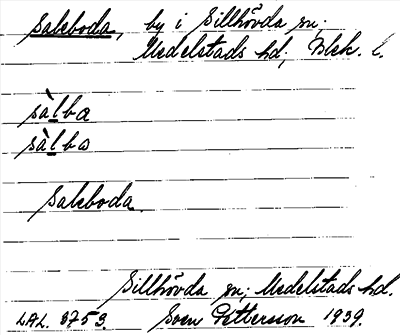 Saleboda, by i Sillhövda sn;
Medelstads hd, Blek. l.
sàlba
sàlba
Saleboda.
Sillhövda sn; Medelstads hd.
LAL. 8753. Sven Pettersson 1939.